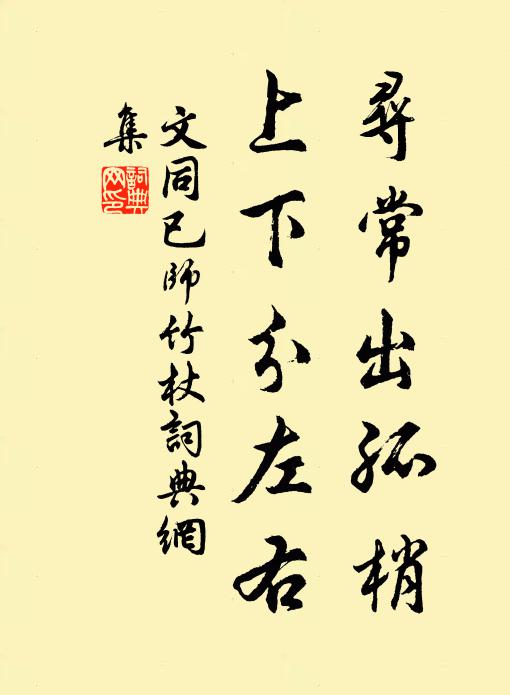 尋常出孤梢
上下分左右
文同已師竹杖詞典網
集
詞典網印